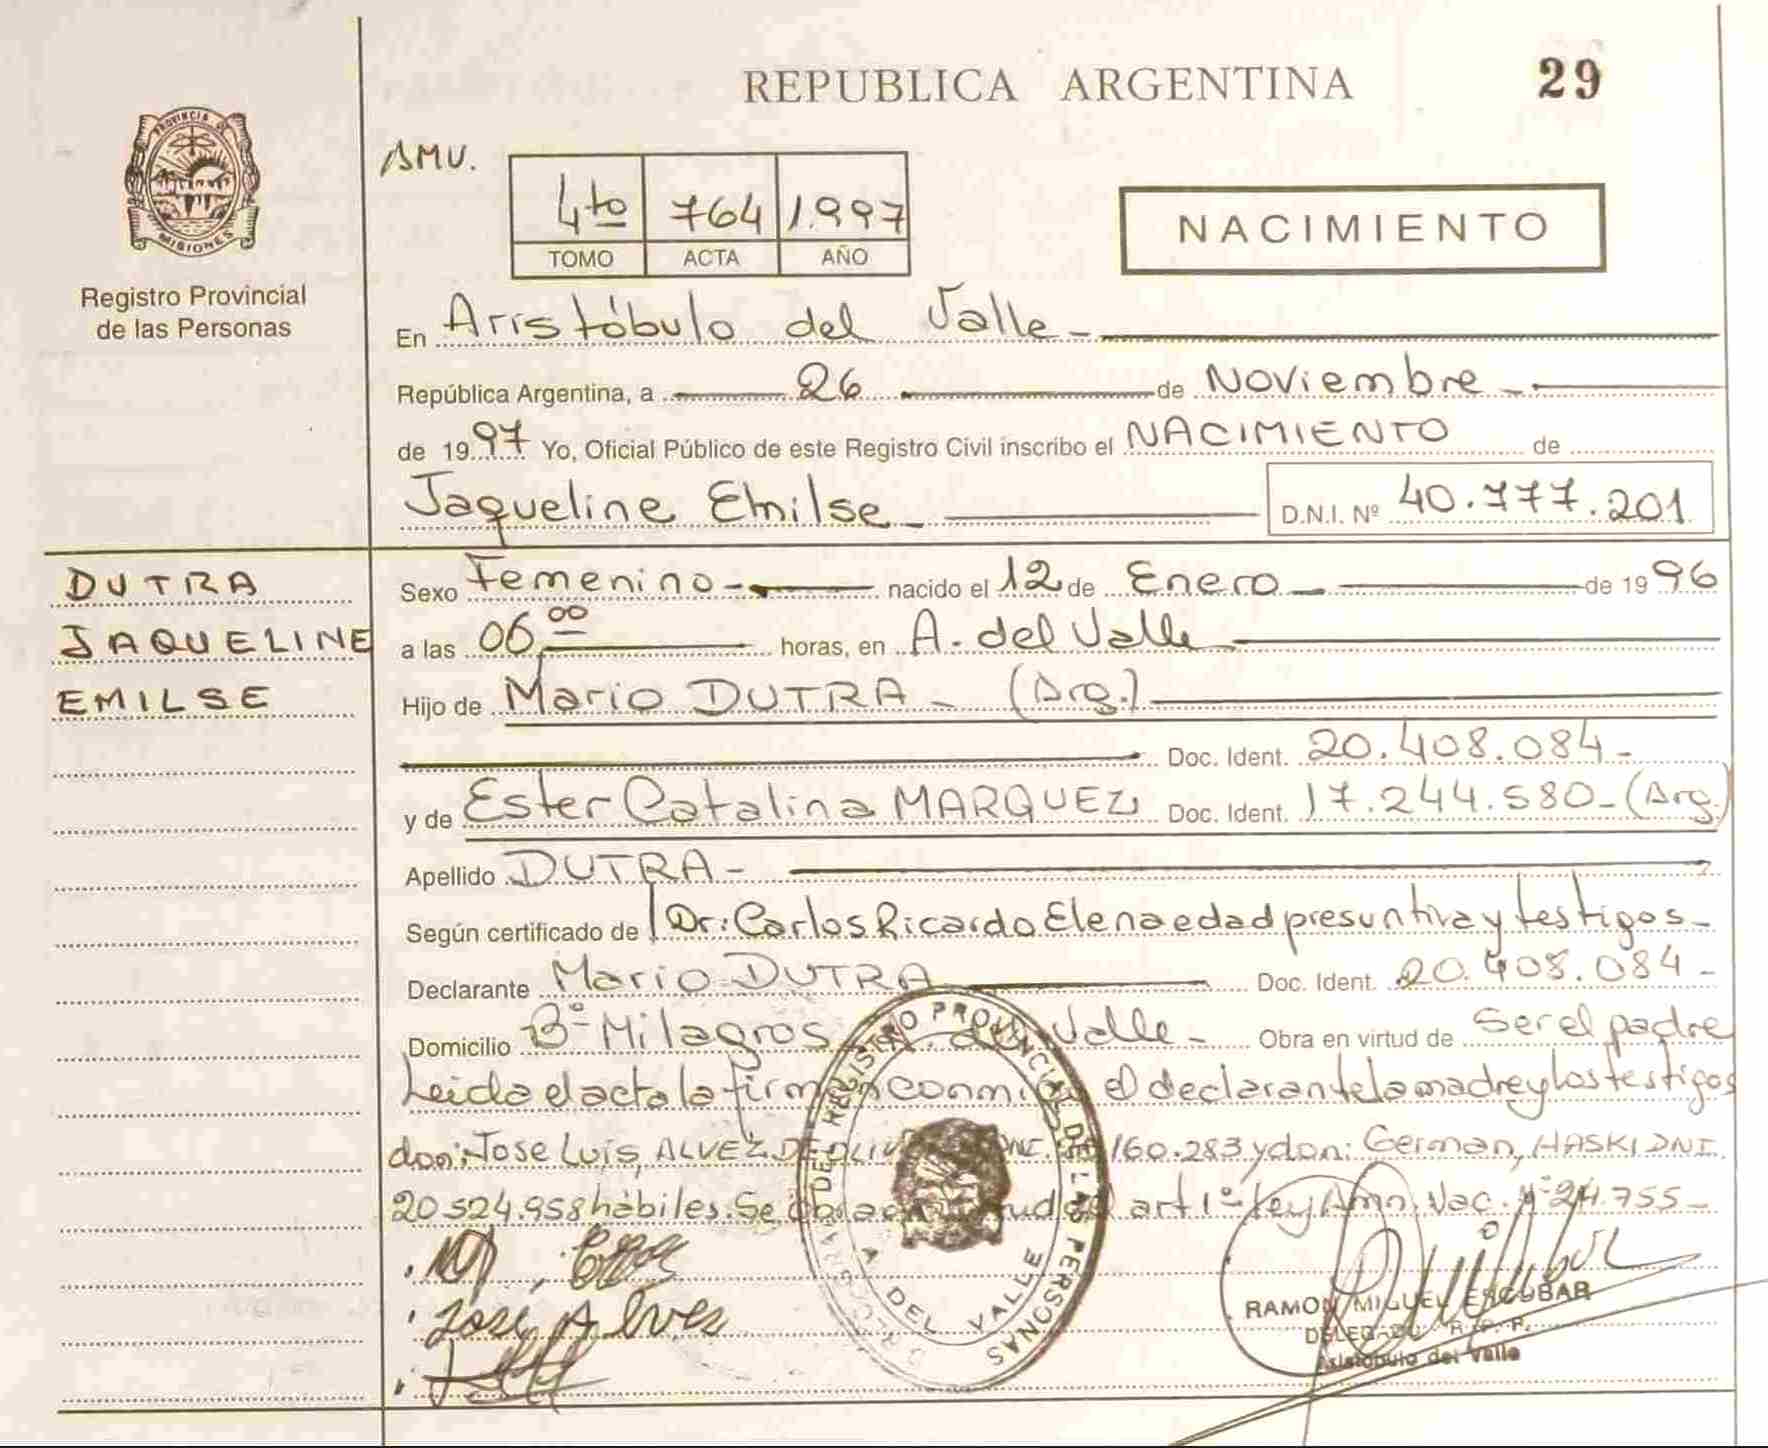 REPUBLICA ARGENTINA
29
PROVINCIA DE
MISIONES
Registro Provincial
de las Personas
AMV.
4to 764 1.997
TOMO ACTA AÑO
NACIMIENTO
En Arístóbulo del Valle -
República Argentina, a 26 de Noviembre -
de 1997 Yo, Oficial Público de este Registro Civil inscribo el NACIMIENTO de
Jaqueline Emilse - D.N.I. Nº 40.777.201
DUTRA
JAQUELINE
EMILSE
Sexo Femenino - nacido el 12 de Enero - de 1996
a las 06 00 horas, en A. del Valle
Hijo de Mario DUTRA - (Arg.)
Doc. Ident. 20.408.084 -
y de Ester Catalina MARQUEZ Doc. Ident. 17.244.580 - (Arg.)
Apellido DUTRA -
Según certificado de Dr: Carlos Ricardo Elena edad presuntiva y testigos -
Declarante Mario DUTRA Doc. Ident. 20.408.084 -
Domicilio Bº Milagros A. del Valle - Obra en virtud de ser el padre
Leida el acta la firman conmigo el declarante la madre y los testigos
don: Jose Luis, ALVEZ DE 160.283 y don: German, HASKI DNI.
20.524.958 hábiles. Se art 1º Ley Amn. Nac. Nº 24.755 -
Jose Alves
REGISTRO PROVINCIAL DE LAS PERSONAS
A DEL VALLE
RAMON MIGUEL ESCOBAR
DELEGADO R. P. P.
Aristobulo del Valle